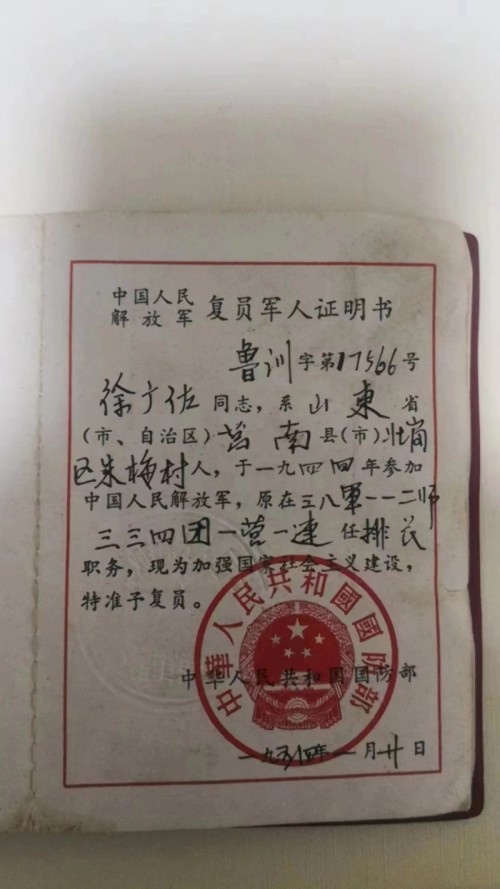 中国人民
解放军 复员军人证明书
鲁训字第17566号
徐广佐同志，系山东省
（市、自治区）莒南县（市）壮岗
区朱梅村人，于一九四四年参加
中国人民解放军，原在三八军一一二师
三三四团一营一连任排长
职务，现为加强国家社会主义建设，
特准予复员。
中华人民共和国国防部
中華人民共和國國防部
一九五
年一月廿日